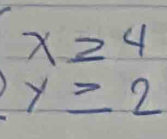 x ≥ 4
y ≥ 2